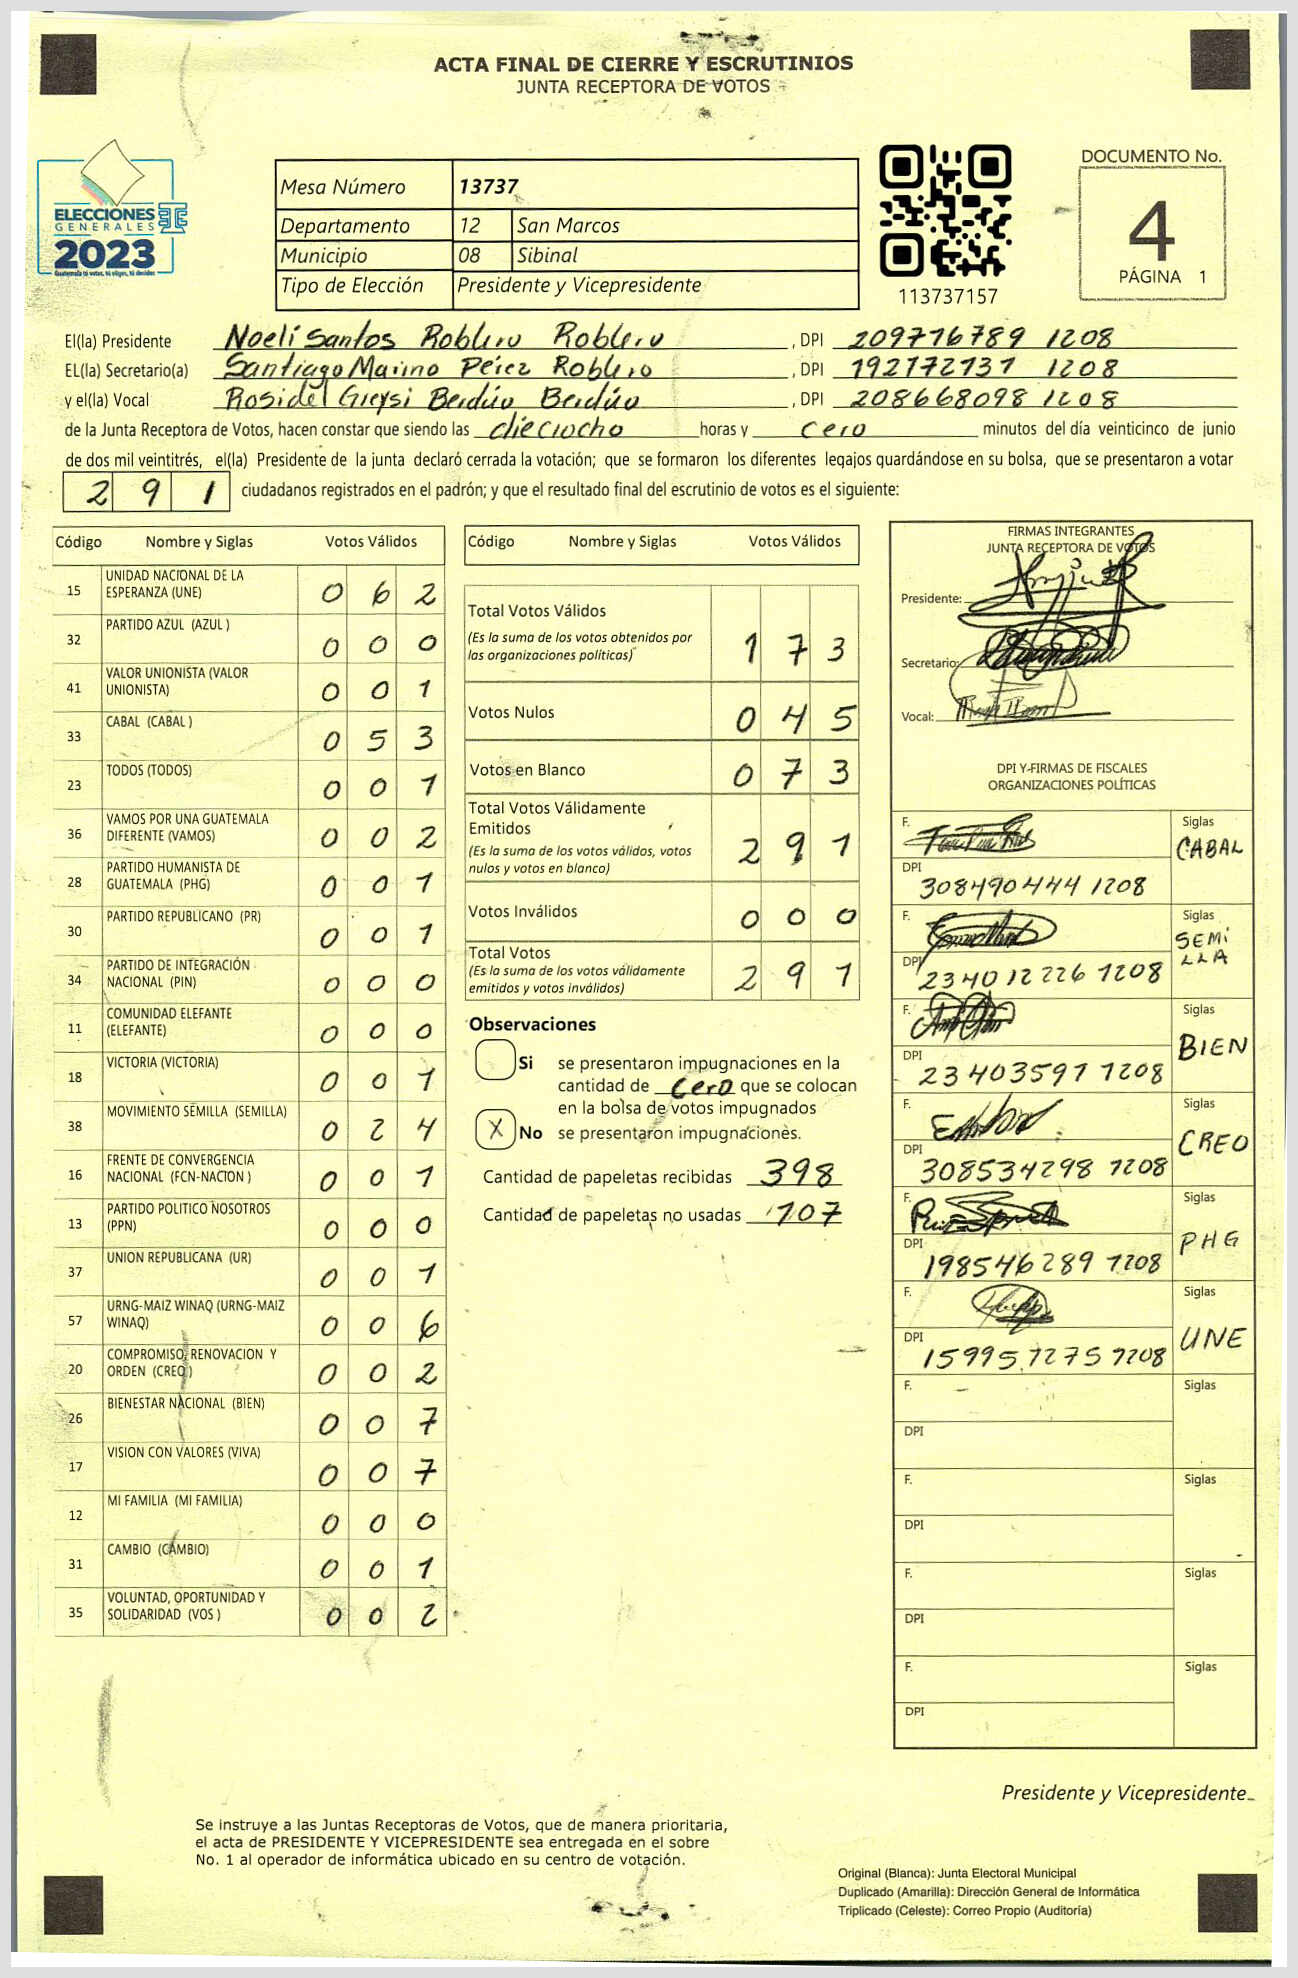 ACTA FINAL DE CIERRE Y ESCRUTINIOS
JUNTA RECEPTORA DE VOTOS
ELECCIONES
GENERALES
2023
Guatemala tú votas, tú eliges, tú decides
Mesa Número 13737
Departamento 12 San Marcos
Municipio 08 Sibinal
Tipo de Elección Presidente y Vicepresidente
113737157
DOCUMENTO No.
4
PÁGINA 1
El(la) Presidente Noelí Santos Roblero Roblero , DPI 209776789 1208
EL(la) Secretario(a) Santiago Marino Pérez Roblero , DPI 192172737 1208
y el(la) Vocal Rosidel Greysi Berdúo Berdúo , DPI 208668098 1208
de la Junta Receptora de Votos, hacen constar que siendo las dieciocho horas y cero minutos del día veinticinco de junio
de dos mil veintitrés, el(la) Presidente de la junta declaró cerrada la votación; que se formaron los diferentes legajos quardándose en su bolsa, que se presentaron a votar
2 9 1 ciudadanos registrados en el padrón; y que el resultado final del escrutinio de votos es el siguiente:
Código Nombre y Siglas Votos Válidos
15 UNIDAD NACIONAL DE LA ESPERANZA (UNE) 0 6 2
32 PARTIDO AZUL (AZUL ) 0 0 0
41 VALOR UNIONISTA (VALOR UNIONISTA) 0 0 1
33 CABAL (CABAL ) 0 5 3
23 TODOS (TODOS) 0 0 1
36 VAMOS POR UNA GUATEMALA DIFERENTE (VAMOS) 0 0 2
28 PARTIDO HUMANISTA DE GUATEMALA (PHG) 0 0 1
30 PARTIDO REPUBLICANO (PR) 0 0 1
34 PARTIDO DE INTEGRACIÓN NACIONAL (PIN) 0 0 0
11 COMUNIDAD ELEFANTE (ELEFANTE) 0 0 0
18 VICTORIA (VICTORIA) 0 0 1
38 MOVIMIENTO SEMILLA (SEMILLA) 0 2 4
16 FRENTE DE CONVERGENCIA NACIONAL (FCN-NACION ) 0 0 1
13 PARTIDO POLITICO NOSOTROS (PPN) 0 0 0
37 UNION REPUBLICANA (UR) 0 0 1
57 URNG-MAIZ WINAQ (URNG-MAIZ WINAQ) 0 0 6
20 COMPROMISO, RENOVACION Y ORDEN (CREO ) 0 0 2
26 BIENESTAR NACIONAL (BIEN) 0 0 7
17 VISION CON VALORES (VIVA) 0 0 7
12 MI FAMILIA (MI FAMILIA) 0 0 0
31 CAMBIO (CAMBIO) 0 0 1
35 VOLUNTAD, OPORTUNIDAD Y SOLIDARIDAD (VOS ) 0 0 2
Código Nombre y Siglas Votos Válidos
Total Votos Válidos
(Es la suma de los votos obtenidos por las organizaciones políticas) 1 7 3
Votos Nulos 0 4 5
Votos en Blanco 0 7 3
Total Votos Válidamente Emitidos
(Es la suma de los votos válidos, votos nulos y votos en blanco) 2 9 1
Votos Inválidos 0 0 0
Total Votos
(Es la suma de los votos válidamente emitidos y votos inválidos) 2 9 1
Observaciones
Si se presentaron impugnaciones en la
cantidad de cero que se colocan
en la bolsa de votos impugnados
X No se presentaron impugnaciones.
Cantidad de papeletas recibidas 398
Cantidad de papeletas no usadas 107
FIRMAS INTEGRANTES
JUNTA RECEPTORA DE VOTOS
Presidente:
Secretario:
Vocal:
DPI Y FIRMAS DE FISCALES
ORGANIZACIONES POLÍTICAS
F. Siglas CABAL
DPI 308490444 1208
F. Siglas SEMILLA
DPI 234012226 1208
F. Siglas BIEN
DPI 23403597 1208
F. Siglas CREO
DPI 308534298 1208
F. Siglas PHG
DPI 198546289 1208
F. Siglas UNE
DPI 159957275 1208
F. Siglas
DPI
F. Siglas
DPI
F. Siglas
DPI
F. Siglas
DPI
Presidente y Vicepresidente
Se instruye a las Juntas Receptoras de Votos, que de manera prioritaria,
el acta de PRESIDENTE Y VICEPRESIDENTE sea entregada en el sobre
No. 1 al operador de informática ubicado en su centro de votación.
Original (Blanca): Junta Electoral Municipal
Duplicado (Amarilla): Dirección General de Informática
Triplicado (Celeste): Correo Propio (Auditoría)